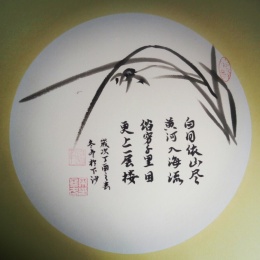 白日依山尽
黄河入海流
欲穷千里目
更上一层楼
岁次丁酉之